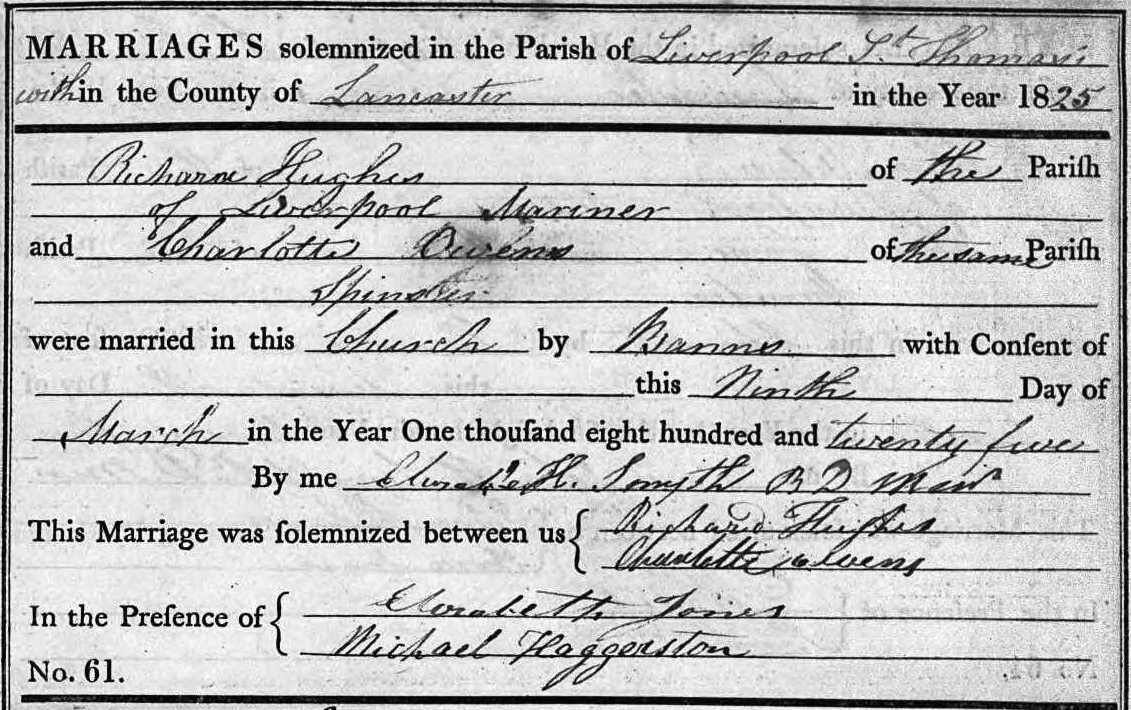 MARRIAGES solemnized in the Parish of Liverpool St Thomas's
within the County of Lancaster in the Year 1825
Richard Hughes of the Pariſh
of Liverpool Mariner
and Charlotte Owens of the same Pariſh
Spinster
were married in this Church by Banns with Conſent of
this Ninth Day of
March in the Year One thouſand eight hundred and twenty five
By me H. Smyth BD
This Marriage was ſolemnized between us { Richard Hughes
Charlotte Owens
In the Preſence of { Elizabeth Jones
Michael Haggerston
No. 61.